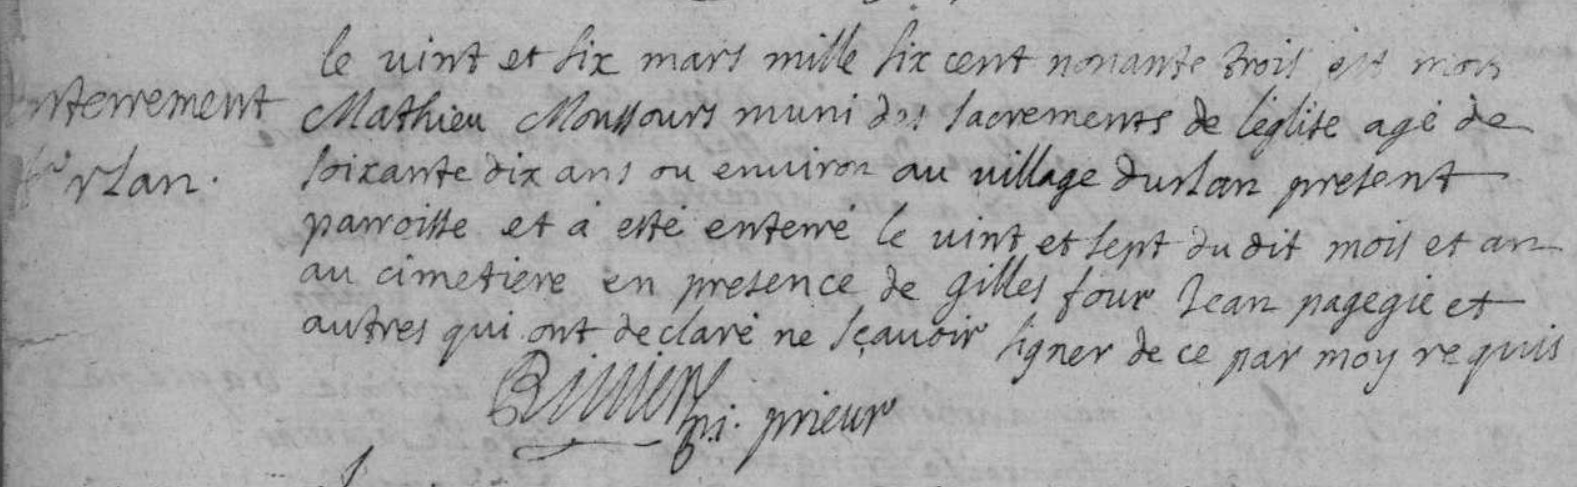 le vint et six mars mille six cent nonante trois est mort
enterrement
Mathieu Moussours muni des sacrements de leglise agé de
soixante dix ans ou environ au village durlan present
parroisse et a esté enterré le vint et sept du dit mois et an
au cimetiere en presence de gilles four Jean pagegie et
autres qui ont declaré ne sçavoir signer de ce par moy requis
prieur